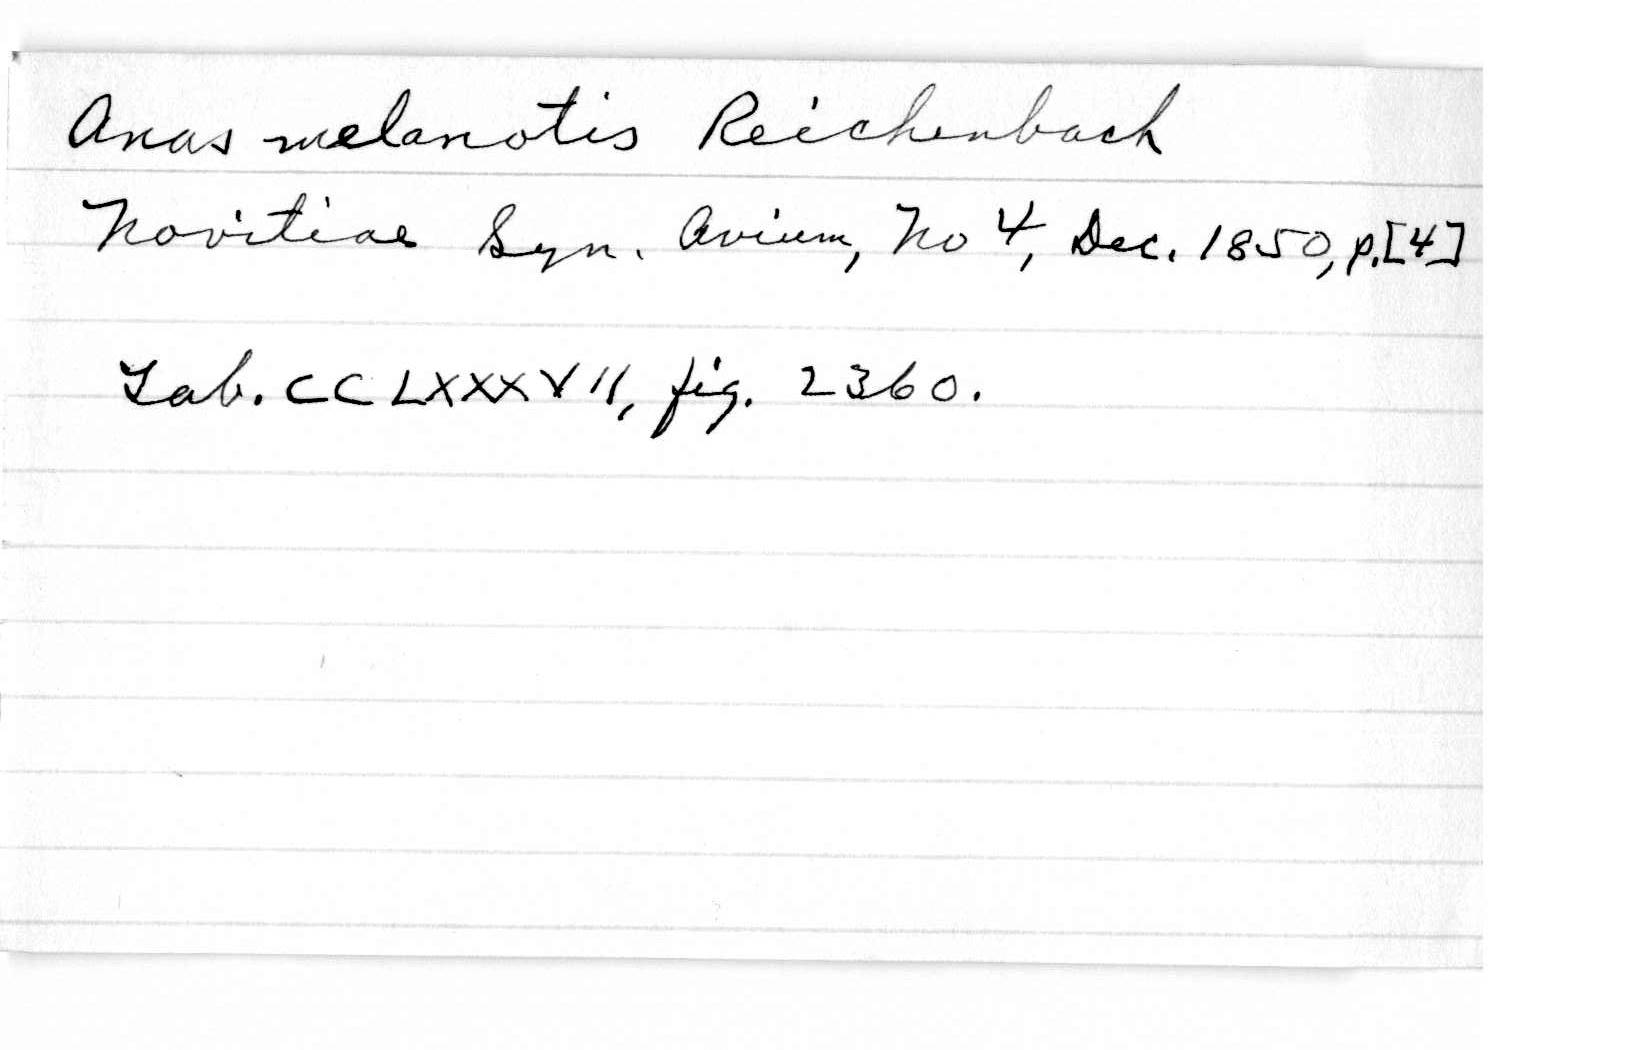 Anas melanotis Reichenbach
Novitiae Syn. Avium, No 4, Dec. 1850, p.[4]
Tab. CCLXXXVII, fig. 2360.